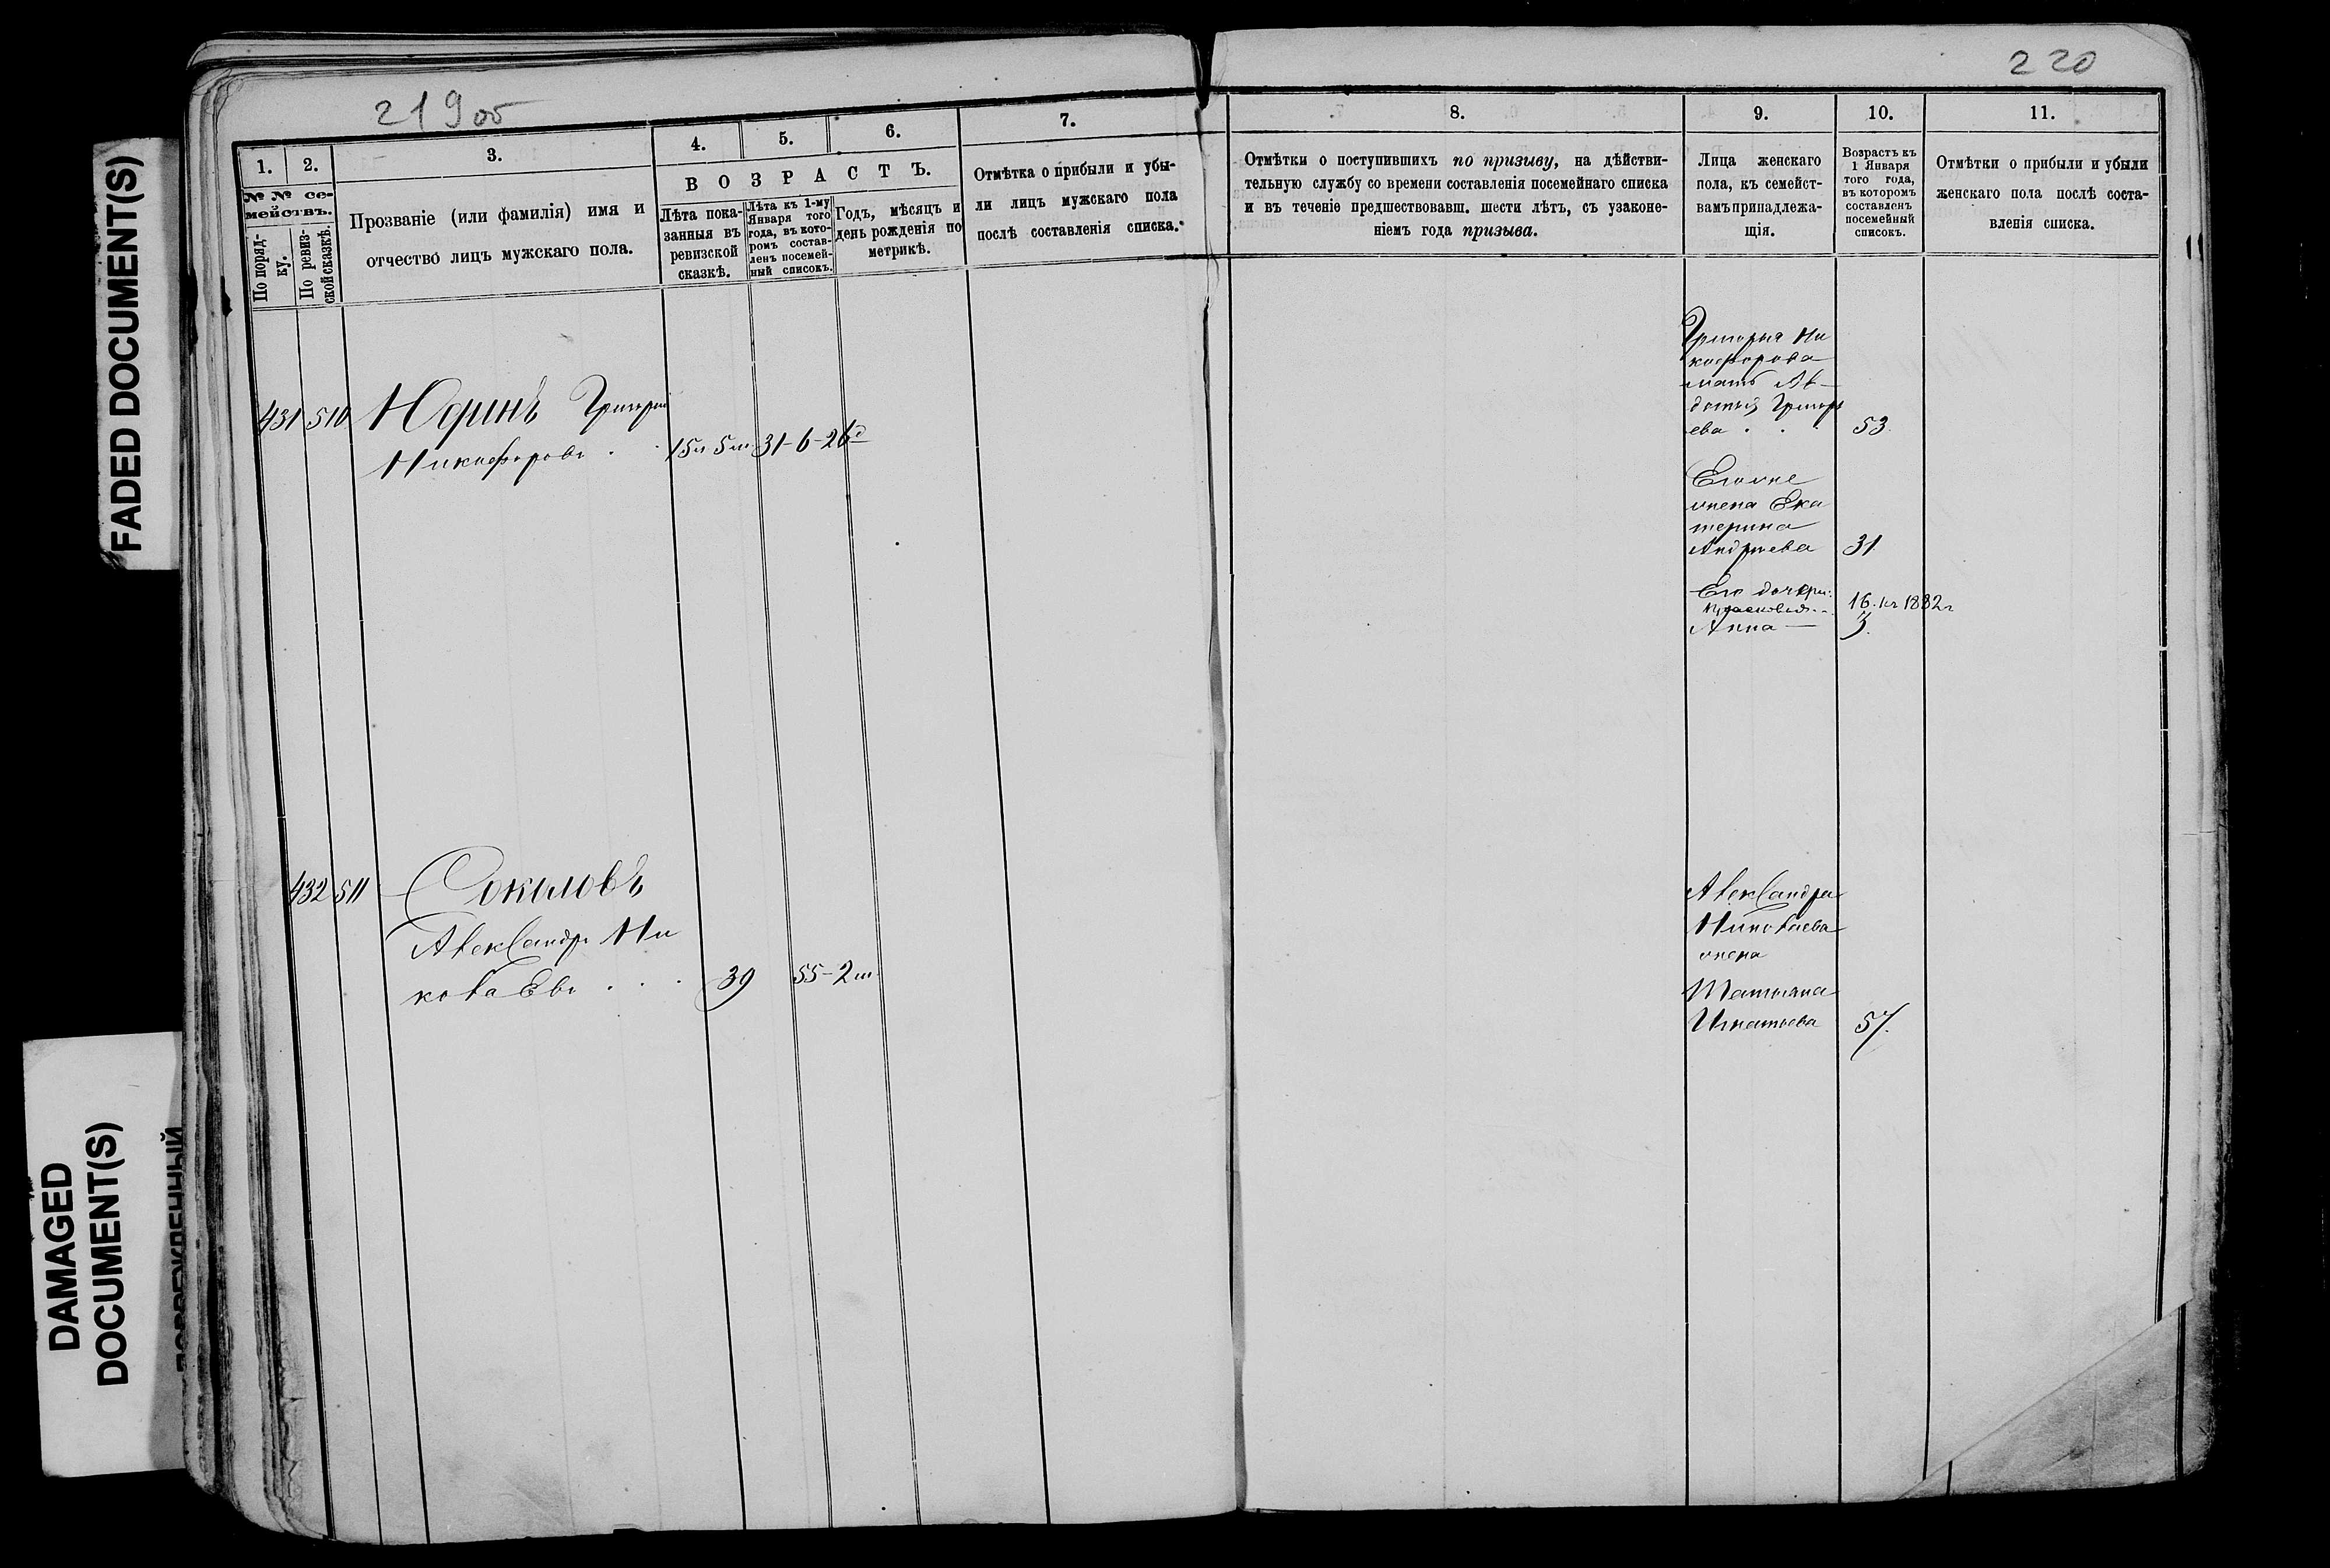 FADED DOCUMENT(S)
DAMAGED
DOCUMENT(S)
219 об
220
1.
2.
3.
4.
5.
6.
7.
8.
9.
10.
11.
№ № се-
мействъ.
По поряд-
ку.
По ревиз-
ской сказкѣ.
Прозваніе (или фамилія) имя и
отчество лицъ мужскаго пола.
ВОЗРАСТЪ.
Лѣта пока-
занныя въ
ревизской
сказкѣ.
Лѣта къ 1-му
Января того
года, въ кото-
ромъ состав-
ленъ посемей-
ный списокъ.
Годъ, мѣсяцъ и
день рожденія по
метрикѣ.
Отмѣтка о прибыли и убы-
ли лицъ мужскаго пола
послѣ составленія списка.
Отмѣтки о поступившихъ по призыву, на дѣйстви-
тельную службу со времени составленія посемейнаго списка
и въ теченіе предшествовавш. шести лѣтъ, съ узаконе-
ніемъ года призыва.
Лица женскаго
пола, къ семейст-
вамъ принадлежа-
щія.
Возрастъ къ
1 Января
того года,
въ которомъ
составленъ
посемейный
списокъ.
Отмѣтки о прибыли и убыли
женскаго пола послѣ соста-
вленія списка.
431 510 Юдинъ Григорій
Никифоровъ . . 15 л 5 м 31-6-26 д
Григорья Ни
кифорова
мать Ав-
дотья Григорь
ева . . . 53.
Его жѣ
жена Ека
терина
Андреева 31.
Его дочери:
Прасковья 16. къ 1882 г
Анна — 3.
432 511 Соколовъ
Александръ Ни
колаевъ . . . 39 55-2 м
Александра
Николаева
жена
Татьяна
Игнатьева 57.